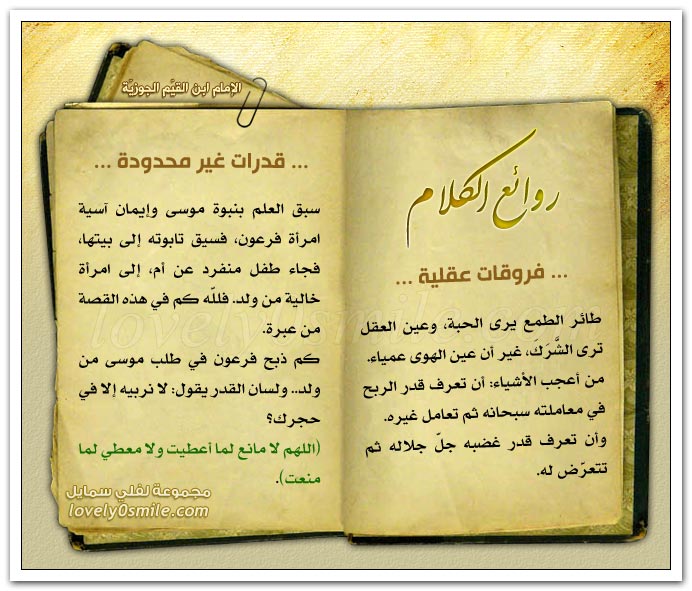 الإمام ابن القيَّم الجوزيَّة
روائع الكلام
... فروقات عقلية ...
طائر الطمع يرى الحبة، وعين العقل
ترى الشَّرَكَ، غير أن عين الهوى عمياء.
من أعجب الأشياء: أن تعرف قدر الربح
في معاملته سبحانه ثم تعامل غيره.
وأن تعرف قدر غضبه جلّ جلاله ثم
تتعرّض له.
... قدرات غير محدودة ...
سبق العلم بنبوة موسى وإيمان آسية
امرأة فرعون، فسيق تابوته إلى بيتها،
فجاء طفل منفرد عن أم، إلى امرأة
خالية من ولد. فللّه كم في هذه القصة
من عبرة.
كم ذبح فرعون في طلب موسى من
ولد.. ولسان القدر يقول: لا نربيه إلا في
حجرك؟
(اللهم لا مانع لما أعطيت ولا معطي لما
منعت).
مجموعة لفلي سمايل
lovely0smile.com
lovely0smile.com